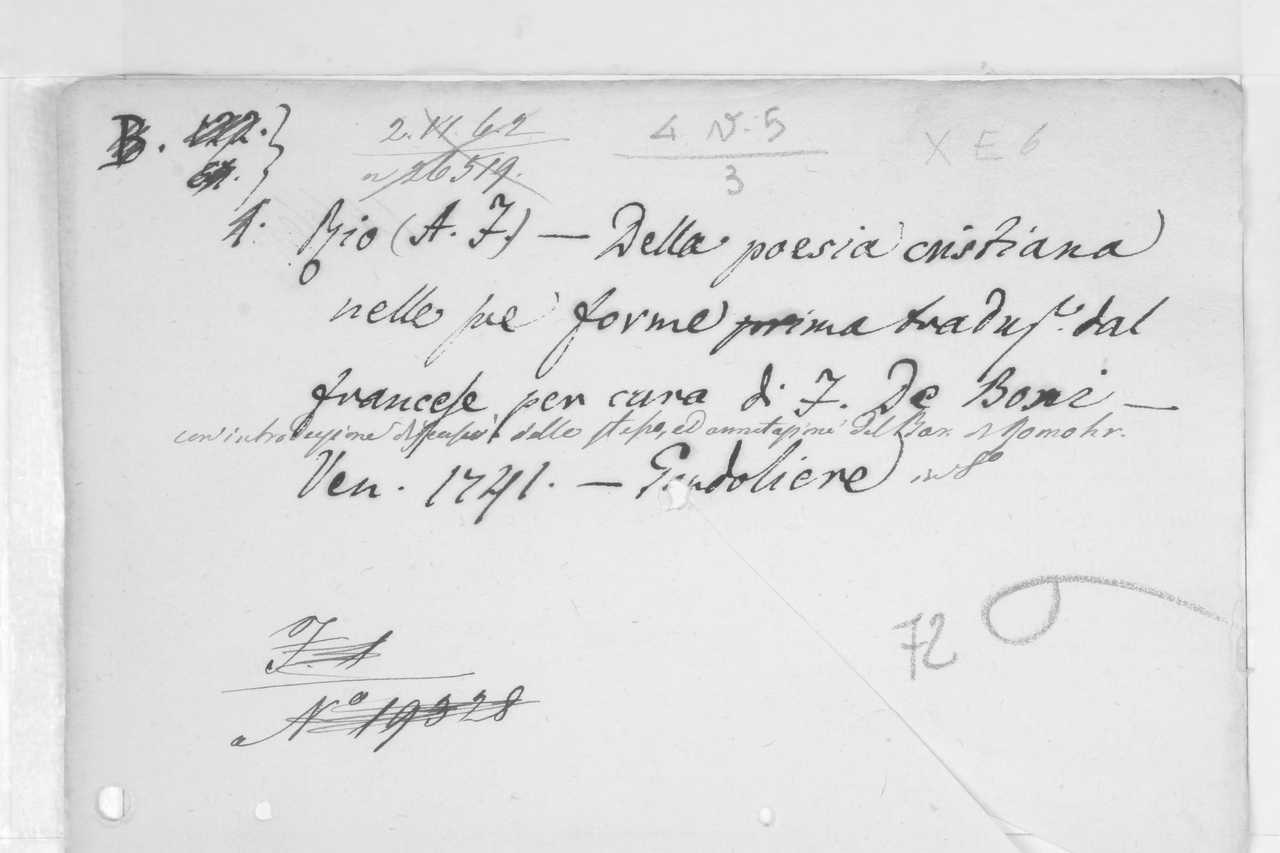 B. 122.
2. 11. 6. 2
4 N. 5
X E 6
61.
n 26519.
3
1. Rio (A. F.) — Della poesia cristiana
nelle sue forme prima traduz.e dal
francese per cura di F. De Boni —
con introduzione dello stesso, ed annotazioni del Bar. di Romohr.
Ven. 1741. — Gondoliere in 8º
72
F. 1
Nº 19328